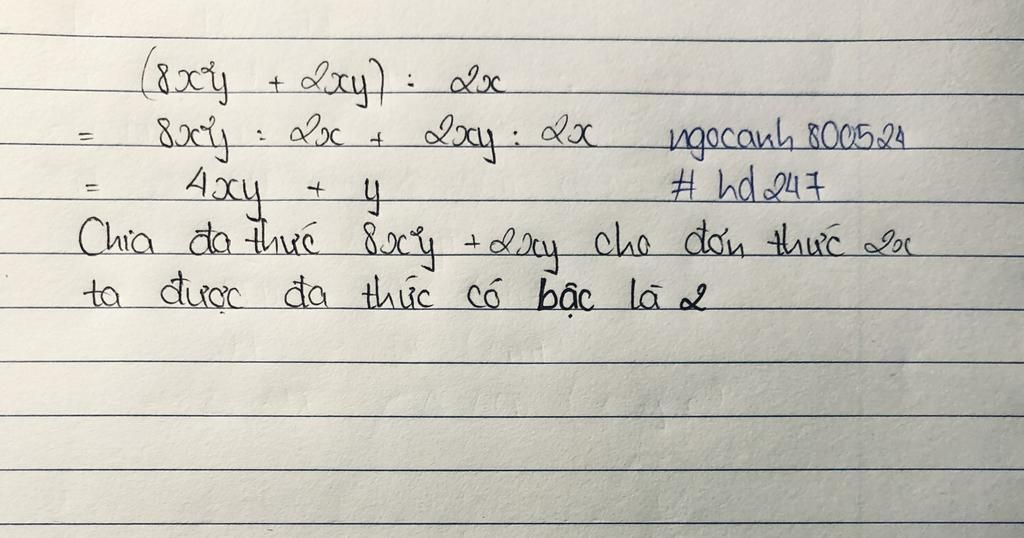 (8x²y + 2xy) : 2x
= 8x²y : 2x + 2xy : 2x ngocanh 800524
= 4xy + y # hd247
Chia đa thức 8x²y + 2xy cho đơn thức 2x
ta được đa thức có bậc là 2